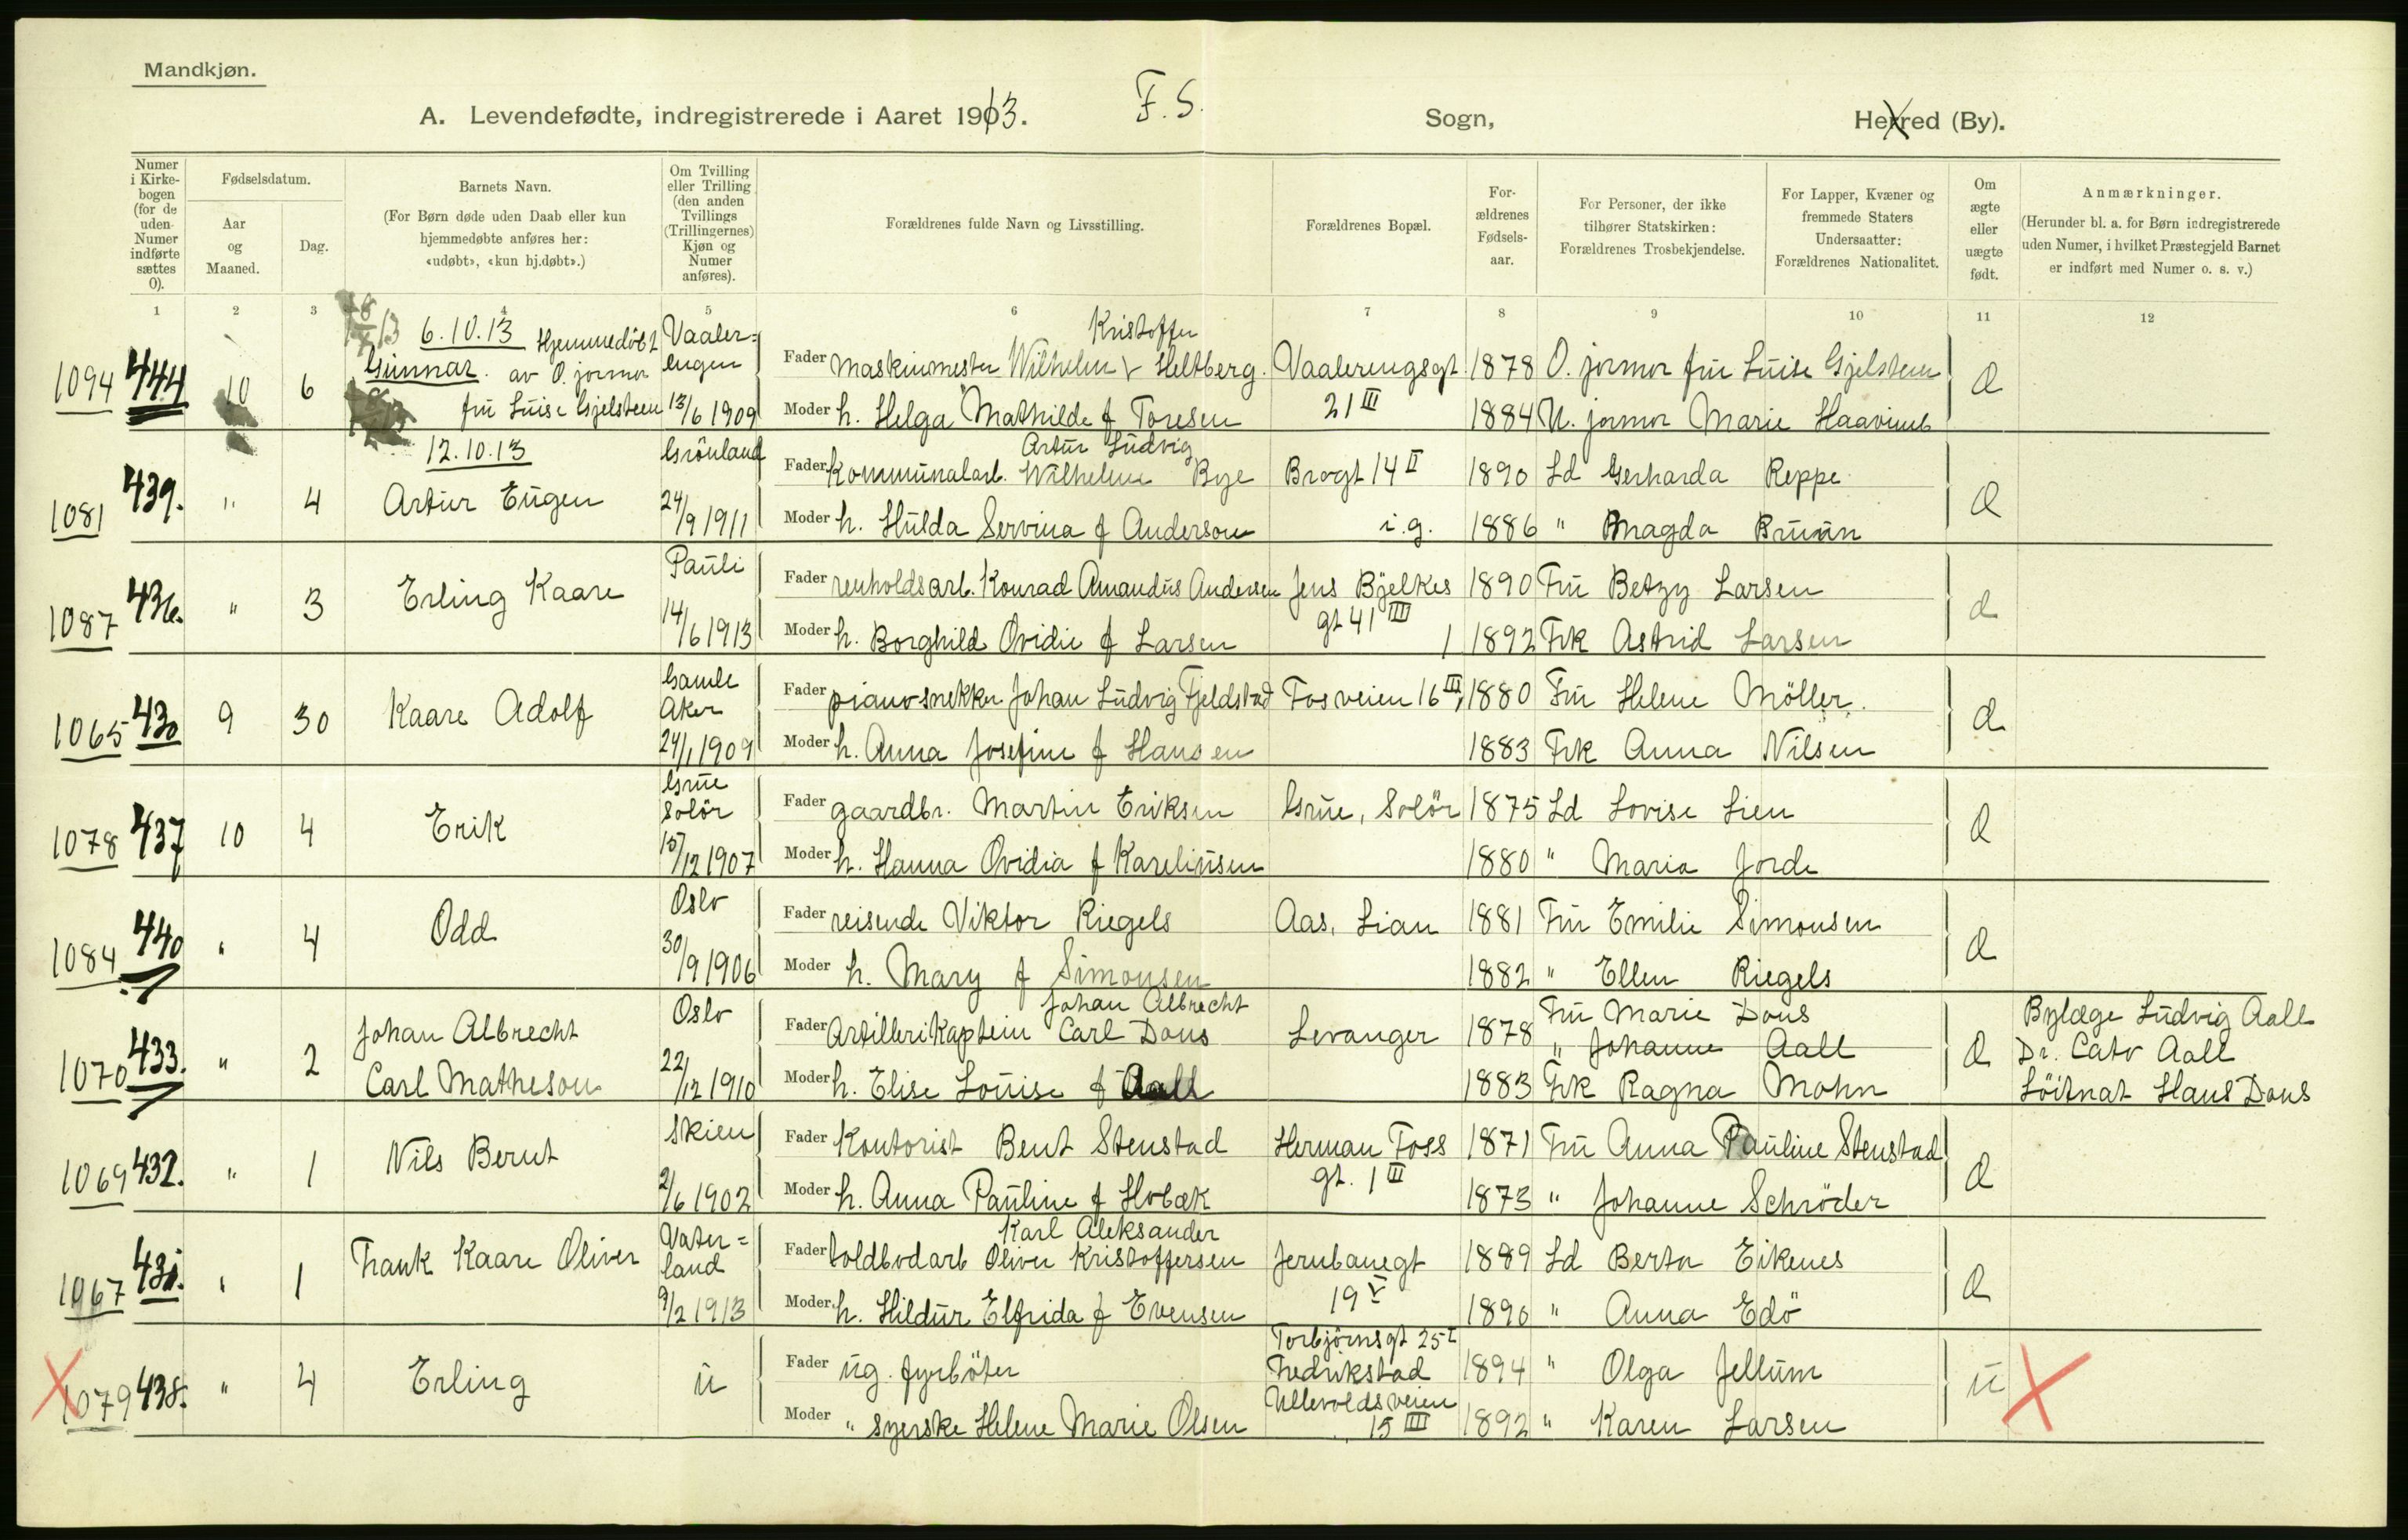 Mandkjøn.
A. Levendefødte, indregistrerede i Aaret 1913.
F. S.
Sogn,
Herred (By).
Numer i Kirkebogen (for de uden Numer indførte sættes 0).
Fødselsdatum.
Aar og Maaned.
Dag.
Barnets Navn.
(For Børn døde uden Daab eller kun hjemmedøbte anføres her: «udøbt», «kun hj.døbt».)
Om Tvilling eller Trilling (den anden Tvillings (Trillingernes) Kjøn og Numer anføres).
Forældrenes fulde Navn og Livsstilling.
Forældrenes Bopæl.
Forældrenes Fødselsaar.
For Personer, der ikke tilhører Statskirken: Forældrenes Trosbekjendelse.
For Lapper, Kvæner og fremmede Staters Undersaatter: Forældrenes Nationalitet.
Om ægte eller uægte født.
Anmærkninger.
(Herunder bl. a. for Børn indregistrerede uden Numer, i hvilket Præstegjeld Barnet er indført med Numer o. s. v.)
1 2 3 4 5 6 7 8 9 10 11 12
1094 444 10 6
6.10.13 Hjemmedöbt
Gunnar. av O. jormor
fru Luise Gjelsteen
Vaaler=
engen
13/6 1909
Kristoffer
Fader maskinmester Wilhelm Heltberg.
Moder h. Helga Mathilde f Toresen
Vaalerengsgt
21 III
1878 O. jormor fru Luise Gjelsteen
1884 U. jormor Marie Haavimb
Æ
1081 439. " 4
12.10.13
Artur Eugen
Grönland
24/9 1911
Artur Ludvig
Fader Kommunalarb. Wilhelm Bye
Moder h. Hulda Servina f Anderson
Brogt 14 II
i.g.
1890 Ld Gerharda Reppe
1886 " Magda Bruun
Æ
1087 436. " 3
Erling Kaare
Pauli
14/6 1913
Fader renholdsarb. Konrad Amandus Andersen
Moder h. Borghild Ovidie f Larsen
Jens Bjelkes
gt 41 III
1890 Fru Betzy Larsen
1892 Frk Astrid Larsen
Æ
1065 430 9 30
Kaare Adolf
Gamle
Aker
24/1 1909
Fader pianosnekker Johan Ludvig Fjeldstad
Moder h. Anna Josefine f Hansen
Fosveien 16 III
1880 Fru Helene Möller.
1883 Frk Anna Nilsen
Æ
1078 437 10 4
Erik
Grue
Solör
15/12 1907
Fader gaardbr. Martin Eriksen
Moder h. Hanna Ovidia f Karelinsen
Grue, Solör
1875 Ld Lovise Lien
1880 " Maria Jorde
Æ
1084 440 " 4
Odd
Oslo
30/9 1906
Fader reisende Viktor Riegels
Moder h. Mary f Simonsen
Aas, Lian
1881 Fru Emilie Simonsen
1882 " Ellen Riegels
Æ
1070 433. " 2
Johan Albrecht
Carl Matheson
Oslo
22/12 1910
Johan Albrecht
Fader Artillerikaptein Carl Dons
Moder h. Elise Louise f Aall
Levanger
1878 Fru Marie Dons
" Johanne Aall
1883 Frk Ragna Mohn
Æ
Bylæge Ludvig Aall
Dr. Cato Aall
Löitnat Hans Dons
1069 432. " 1
Nils Bernt
Skien
2/6 1902
Fader Kontorist Bent Stenstad
Moder h. Anna Pauline f Hobæk
Herman Foss
gt. 1 III
1871 Fru Anna Pauline Stenstad
1873 " Johanne Schröder
Æ
1067 431. " 1
Frank Kaare Oliver
Vater=
land
9/2 1913
Karl Aleksander
Fader toldbodarb Oliver Kristoffersen
Moder h. Hildur Elfrida f Evensen
Jernbanegt
19 V
1889 Ld Berta Eikenes
1890 " Anna Edö
Æ
1079 438. " 4
Erling
u
Fader ug. fyrböter
Moder " syerske Helene Marie Olsen
Torbjörnsgt 25 I
Fredrikstad
Ullevoldsveien
15 III
1894 " Olga Jellum
1892 " Karen Larsen
u